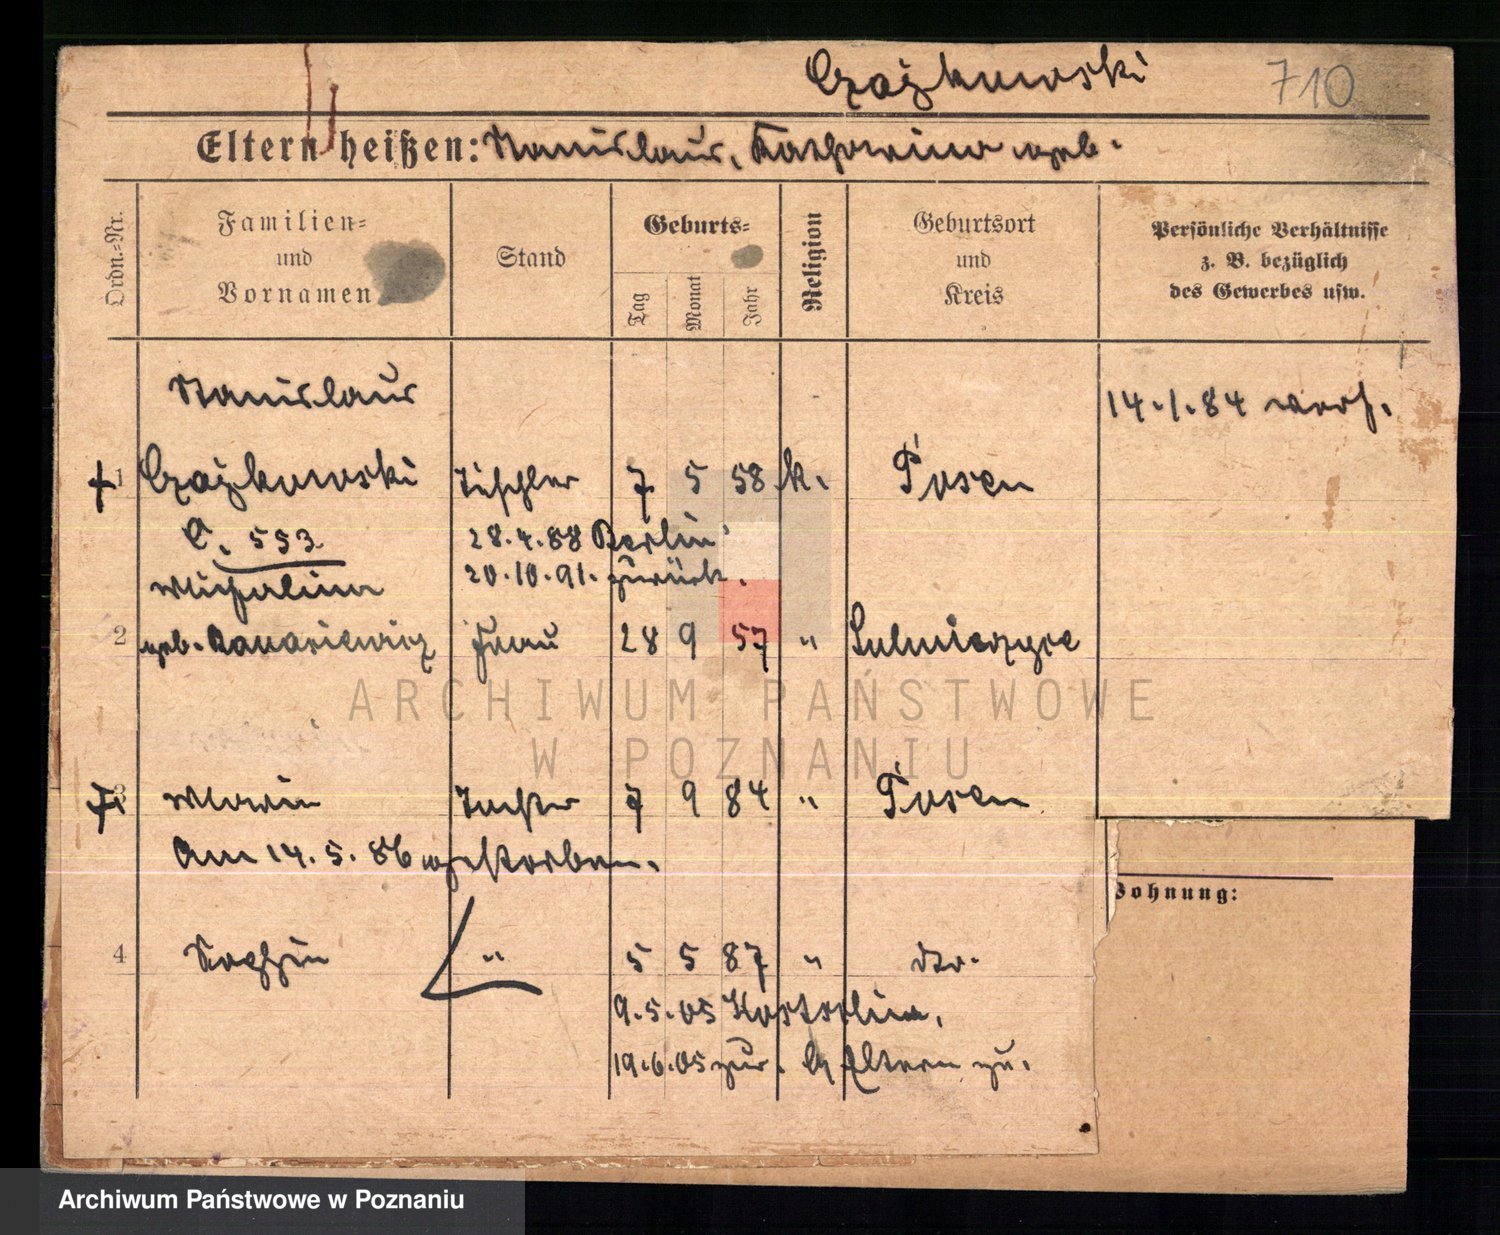 Czajkowski 710
Eltern heißen: Stanislaus, Katharina geb.
Ordn.-Nr.
Familien- und Vornamen
Stand
Geburts-
Tag
Monat
Jahr
Religion
Geburtsort und Kreis
Persönliche Verhältnisse z. B. bezüglich des Gewerbes usw.
Stanislaus
14.1.84 verh.
1 Czajkowski Tischler 7 5 58 k. Posen
C. 553. 28.4.88 Berlin
Michalina 20.10.91. zurück.
2 geb. Frau 28 9 57 " Sulmierzyce
ARCHIWUM PAŃSTWOWE
W POZNANIU
3 Maria Tochter 7 9 84 " Posen
Am 14.5.86 gestorben.
Wohnung:
4 " 5 5 87 " dto.
9.5.05
19.6.05 zur. Eltern zu.
Archiwum Państwowe w Poznaniu